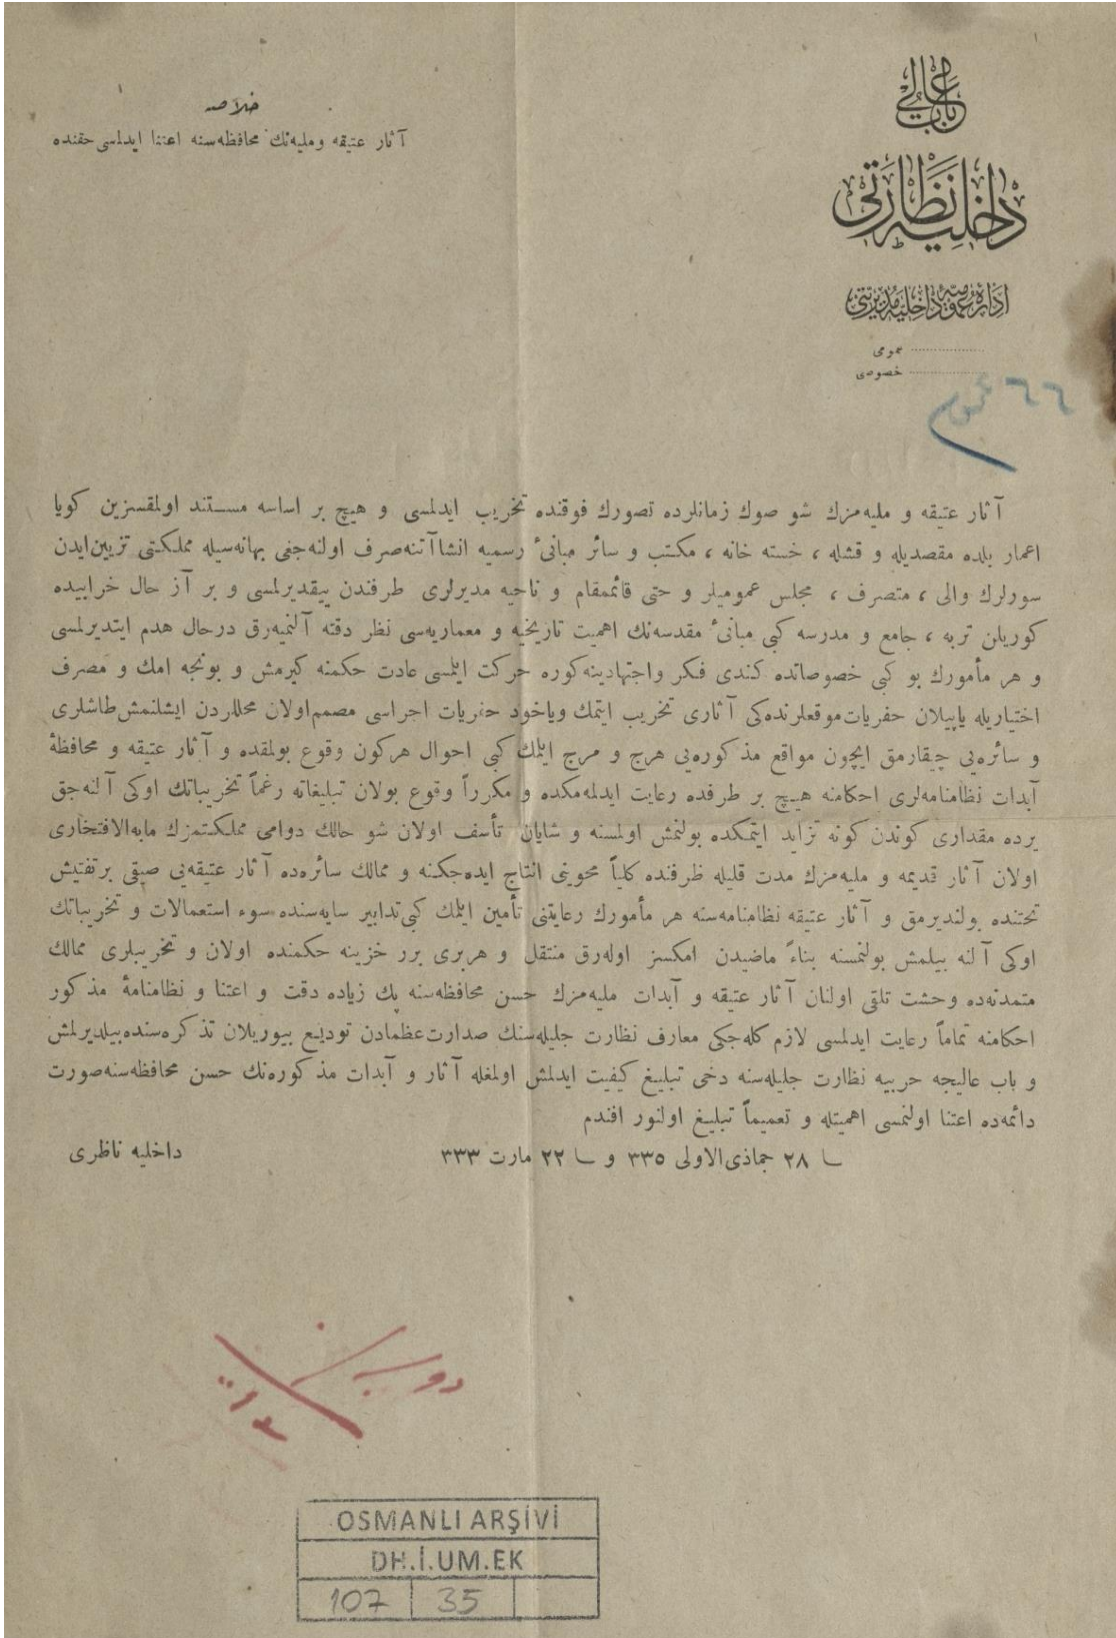 باب عالی
داخلیه نظارتی
اداره عمومیهٔ داخلیه مدیریتی
عمومی
خصوصی
٦٦ عموم
خلاصه
آثار عتیقه و ملیه‌نك محافظه‌سنه اعتنا ایدلمسی حقنده
آثار عتیقه و ملیه‌مزك شو صوك زمانلرده تصورك فوقنده تخریب ایدلمسی و هیچ بر اساسه مستند اولمقسزین كویا
اعمار بلده مقصدیله و قشله ، خسته خانه ، مكتب و سائر مبانیٔ رسمیه انشاآتنه صرف اولنه‌جغی بهانه‌سیله مملكتی تزیین ایدن
سورلرك والی ، متصرف ، مجلس عمومیلر و حتی قائممقام و ناحیه مدیرلری طرفندن ییقدیرلمسی و بر آز حال خرابیده
كوریلن تربه ، جامع و مدرسه كبی مبانیٔ مقدسه‌نك اهمیت تاریخیه و معماریه‌سی نظر دقته آلنمیه‌رق درحال هدم ایتدیرلمسی
و هر مأمورك بو كبی خصوصاتده كندی فكر و اجتهادینه كوره حركت ایلمسی عادت حكمنه كیرمش و بونجه امك و مصرف
اختیاریله یاپیلان حفریات موقعلرنده‌كی آثاری تخریب ایتمك ویاخود حفریات اجراسی مصمم اولان محللردن ایشلنمش طاشلری
و سائره‌یی چیقارمق ایچون مواقع مذكوره‌یی هرج و مرج ایلمك كبی احوال هركون وقوع بولمقده و آثار عتیقه و محافظهٔ
آبدات نظامنامه‌لری احكامنه هیچ بر طرفده رعایت ایدلمه‌مكده و مكرراً وقوع بولان تبلیغاته رغماً تخریباتك اوكی آلنه‌جق
یرده مقداری كوندن كونه تزاید ایتمكده بولنمش اولمسنه و شایان تأسف اولان شو حالك دوامی مملكتمزك مابه‌الافتخاری
اولان آثار قدیمه و ملیه‌مزك مدت قلیله ظرفنده كلیاً محوینی انتاج ایده‌جكنه و ممالك سائره‌ده آثار عتیقه‌یی صیقی بر تفتیش
تحتنده بولندیرمق و آثار عتیقه نظامنامه‌سنه هر مأمورك رعایتنی تأمین ایلمك كبی تدابیر سایه‌سنده سوء استعمالات و تخریباتك
اوكی آلنه بیلمش بولنمسنه بناءً ماضیدن امكسز اوله‌رق منتقل و هربری برر خزینه حكمنده اولان و تخریبلری ممالك
متمدنه‌ده وحشت تلقی اولنان آثار عتیقه و آبدات ملیه‌مزك حسن محافظه‌سنه پك زیاده دقت و اعتنا و نظامنامهٔ مذكور
احكامنه تماماً رعایت ایدلمسی لازم كله‌جكی معارف نظارت جلیله‌سنك صدارت عظمادن تودیع بیوریلان تذكره‌سنده بیلدیرلمش
و باب عالیجه حربیه نظارت جلیله‌سنه دخی تبلیغ كیفیت ایدلمش اولمغله آثار و آبدات مذكوره‌نك حسن محافظه‌سنه صورت
دائمه‌ده اعتنا اولنمسی اهمیتله و تعمیماً تبلیغ اولنور افندم
٢٨ جماذی‌الاولی ٣٣٥ و ٢٢ مارت ٣٣٣
داخلیه ناظری
OSMANLI ARŞİVİ
DH.İ.UM.EK
107 35